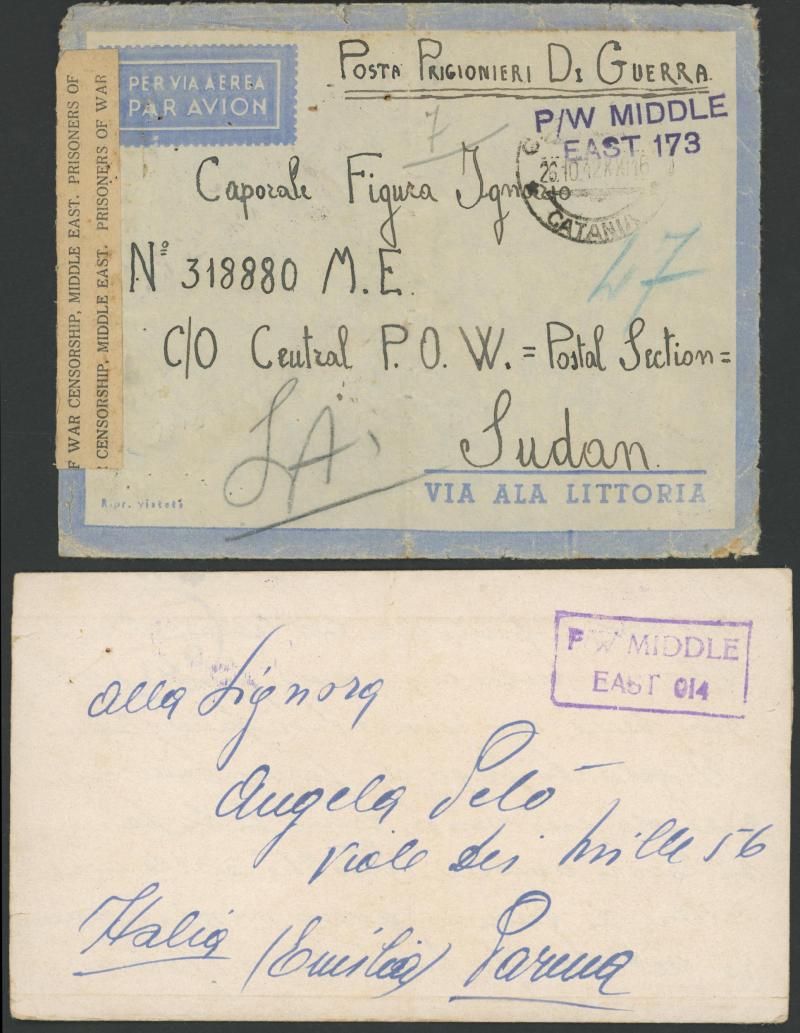 PER VIA AEREA
PAR AVION
POSTA PRIGIONIERI DI GUERRA.
P/W MIDDLE
EAST 173
7
26.10.42 XX 16
CATANIA
Caporale Figura Ignazio
Nº 318880 M.E.
47
C/O Central P.O.W. = Postal Section =
SA,
Sudan.
VIA ALA LITTORIA
Ripr. vietata
F WAR CENSORSHIP, MIDDLE EAST. PRISONERS OF
CENSORSHIP, MIDDLE EAST. PRISONERS OF WAR
P/W MIDDLE
EAST 014
alla Signora
Angela Pelò
viale dei Mille 56
Italia (Emilia) Parma